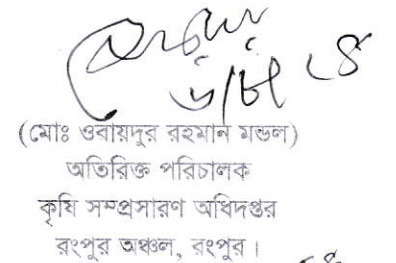 ৬/৮/
(মোঃ ওবায়দুর রহমান মন্ডল)
অতিরিক্ত পরিচালক
কৃষি সম্প্রসারণ অধিদপ্তর
রংপুর অঞ্চল, রংপুর।